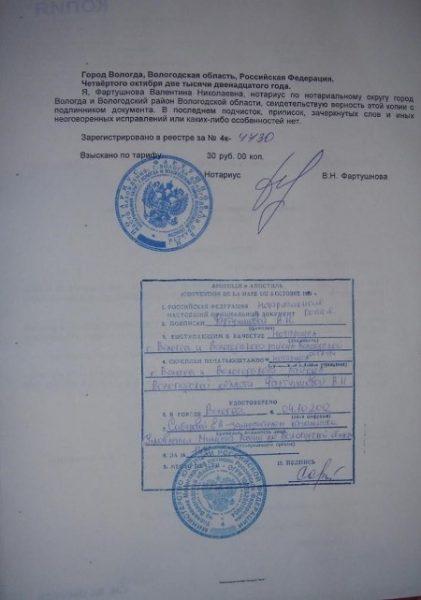 КОПИЯ
Город Вологда, Вологодская область, Российская Федерация.
Четвёртого октября две тысячи двенадцатого года.
Я, Фартушнова Валентина Николаевна, нотариус по нотариальному округу город
Вологда и Вологодский район Вологодской области, свидетельствую верность этой копии с
подлинником документа. В последнем подчисток, приписок, зачеркнутых слов и иных
неоговоренных исправлений или каких-либо особенностей нет.
Зарегистрировано в реестре за № 4к- 4430
Взыскано по тарифу: 30 руб. 00 коп.
Нотариус В.Н. Фартушнова
АПОСТИЛЬ
(CONVENTION DE LA HAYE DU 5 OCTOBRE 1961
1. РОССИЙСКАЯ ФЕДЕРАЦИЯ
НАСТОЯЩИЙ ОФИЦИАЛЬНЫЙ ДОКУМЕНТ
2. ПОДПИСАН Фартушновой В.Н.
3. ВЫСТУПАЮЩИМ В КАЧЕСТВЕ нотариуса
г. Вологда и Вологодского района Вологодской
4. СКРЕПЛЕН ПЕЧАТЬЮ/ШТАМПОМ нотариуса
г. Вологда и Вологодского района
Вологодской области Фартушновой В.Н.
УДОСТОВЕРЕНО
5. В ГОРОДЕ Вологда 6. 04.10.2012
7.
Управления Минюста России по Вологодской области
8. ЗА №
9. МЕСТО 10. ПОДПИСЬ